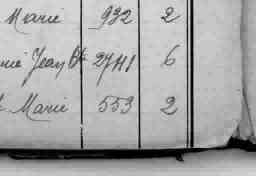 Marie 932 2
Jean Bte 2741 6
Marie 553 2